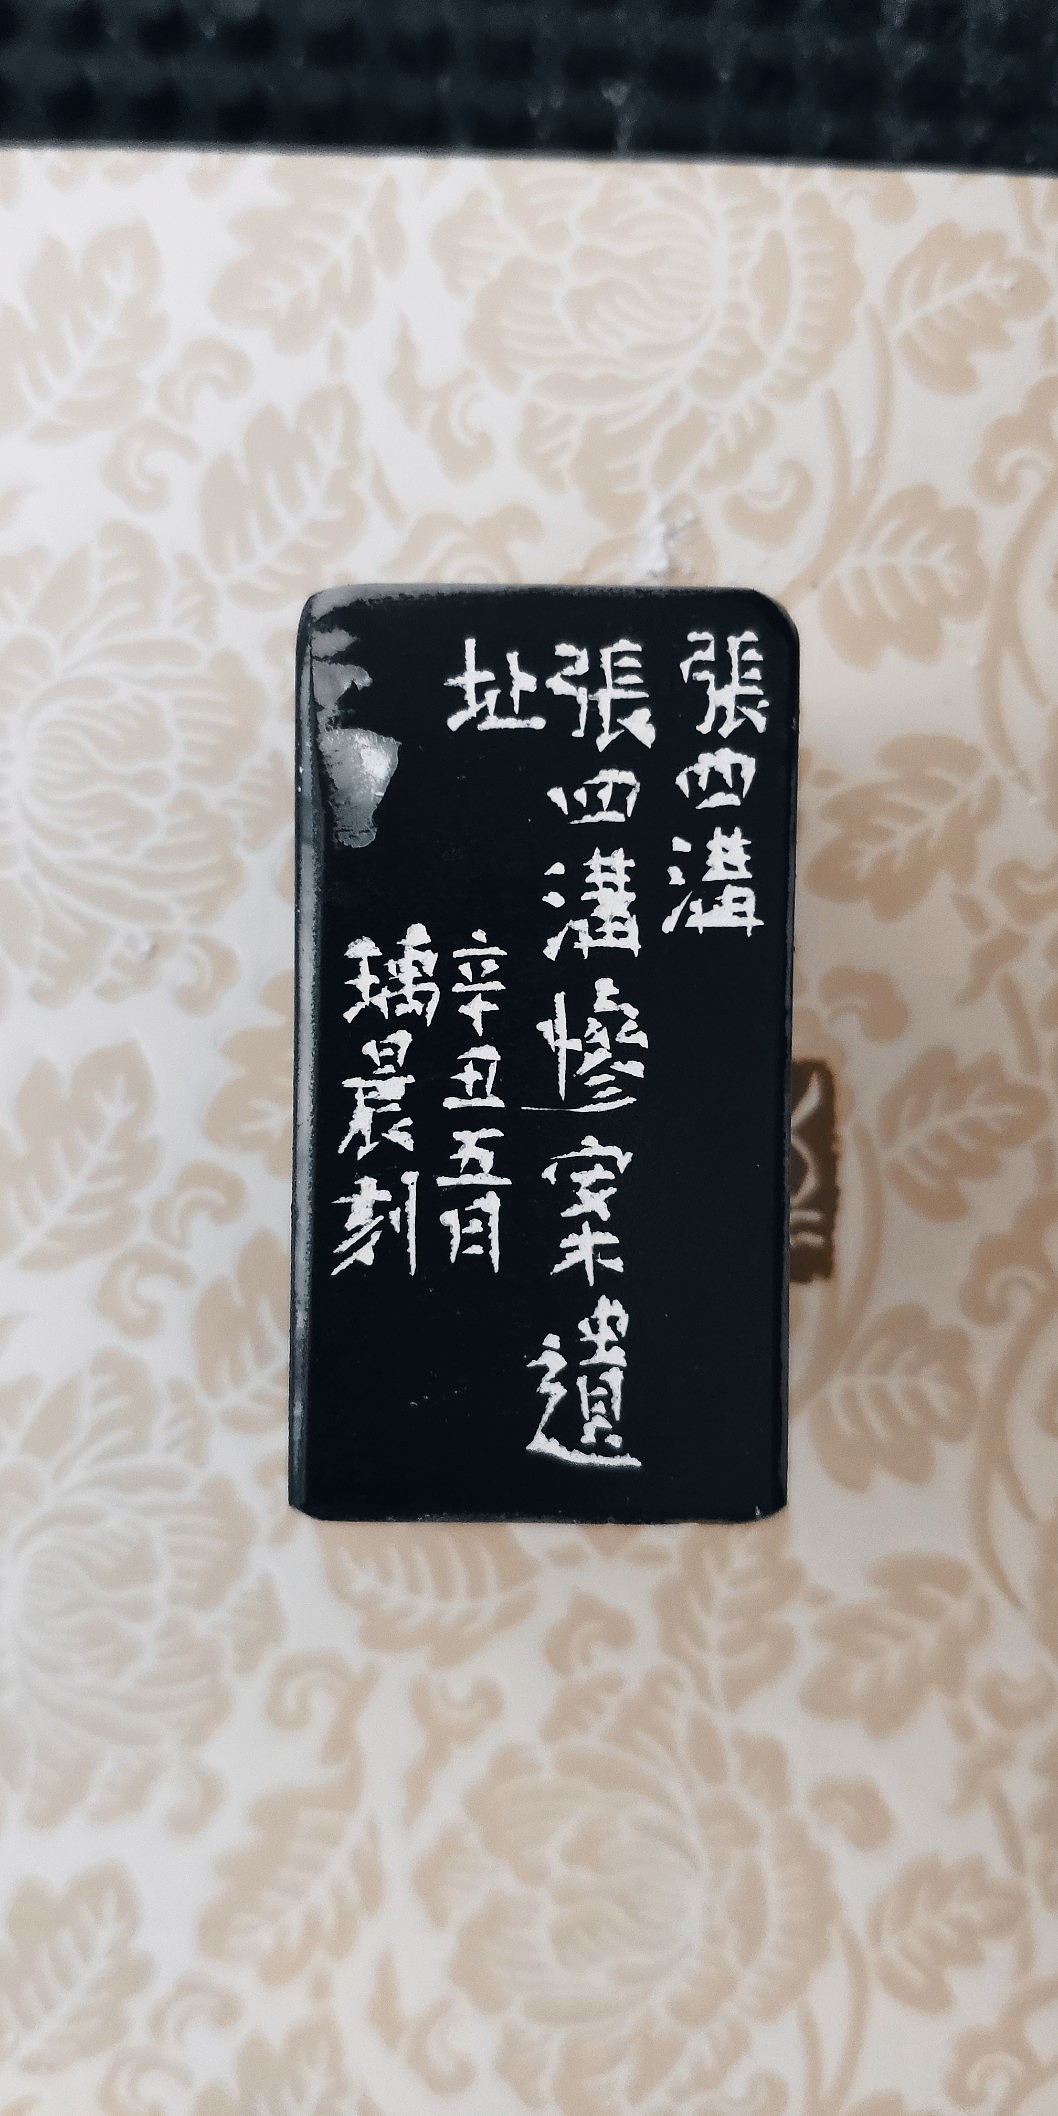 張四溝
張四溝慘案遺
址
辛丑五月
瑀晨刻